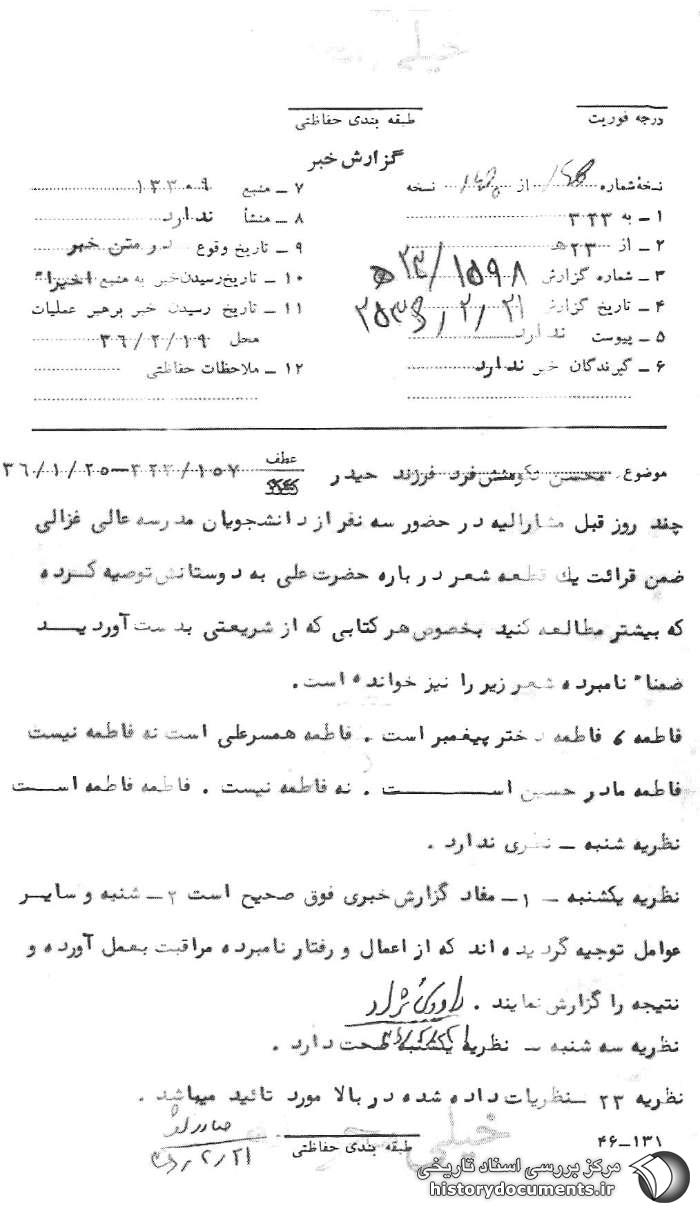 خیلی
درجه فوریت
طبقه بندی حفاظتی
گزارش خبر
نسخهٔ شماره از نسخه
۱ ـ به ۳۲۳
۲ ـ از ۲۳ هـ
۳ ـ شماره گزارش ۲۳/۱۵۹۸ هـ
۴ ـ تاریخ گزارش ۲۵۳۶/۲/۲۱
۵ ـ پیوست ندارد
۶ ـ گیرندگان خبر ندارد
۷ ـ منبع ۱۳۳۰۹
۸ ـ منشأ ندارد
۹ ـ تاریخ وقوع در متن خبر
۱۰ ـ تاریخ رسیدن خبر به منبع اخیراً
۱۱ ـ تاریخ رسیدن خبر برهبر عملیات
محل ۳۶/۲/۱۹
۱۲ ـ ملاحظات حفاظتی
موضوع محسن نکومنش فرد فرزند حیدر عطف ۳۲۳/۱۵۷ــ۳۶/۱/۲۵
چند روز قبل مشارالیه در حضور سه نفر از دانشجویان مدرسه عالی غزالی
ضمن قرائت یك قطعه شعر درباره حضرت علی به دوستانش توصیه کـرده
که بیشتر مطالعه کنید بخصوص هر کتابی که از شریعتی بدست آوردیـــد
ضمناً نامبرده شعر زیر را نیز خوانده است.
فاطمه ، فاطمه دختر پیغمبر است . فاطمه همسرعلی است نه فاطمه نیست
فاطمه مادر حسین اســـــــت . نه فاطمه نیست . فاطمه فاطمه اســـت
نظریه شنبه ـ نظری ندارد .
نظریه یکشنبه ـ ۱ـ مفاد گزارش خبری فوق صحیح است ۲ـ شنبه و سایـر
عوامل توجیه گردیده اند که از اعمال و رفتار نامبرده مراقبت بعمل آورده و
نتیجه را گزارش نمایند .
نظریه سه شنبه ـ نظریه یکشنبه صحت دارد .
نظریه ۲۳ ـنظریات داده شده در بالا مورد تائید میباشد .
خیلی
طبقه بندی حفاظتی
۴۶ــ۱۳۱
مرکز بررسی اسناد تاریخی
historydocuments.ir